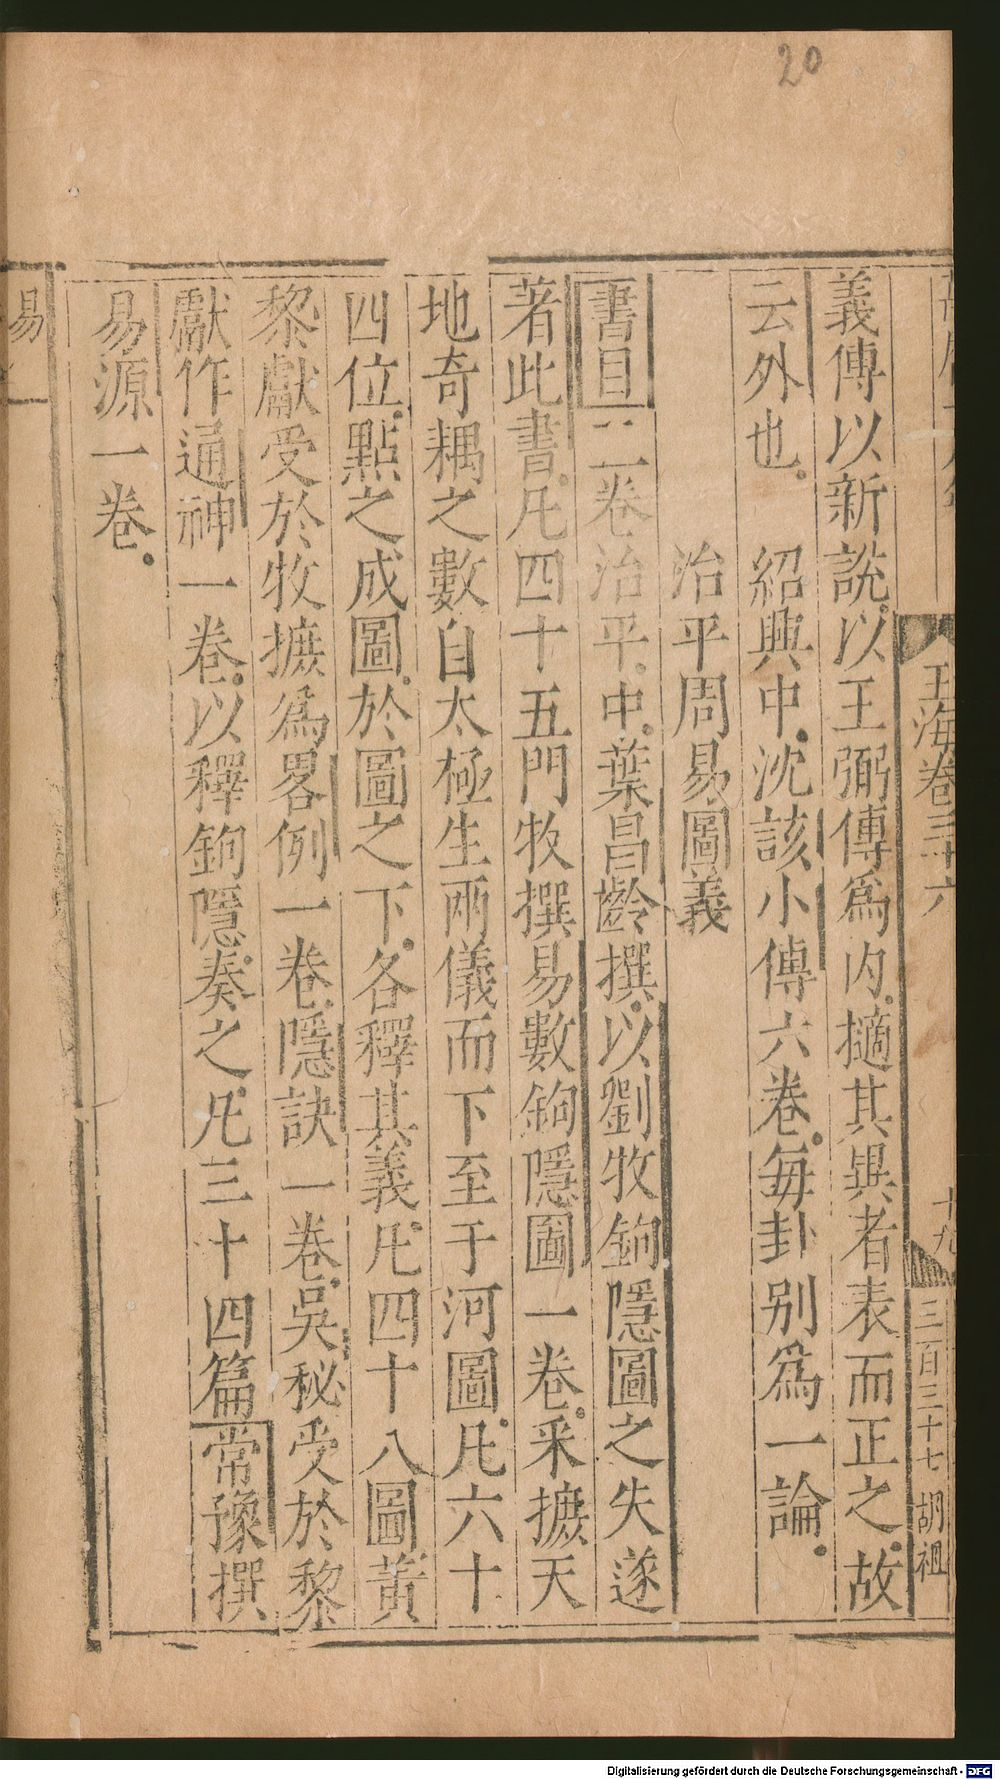 20
玉海卷三十六
十九
三百三十七
胡祖
義傳以新說以王弼傳爲内擿其異者表而正之故
云外也。紹興中沈該小傳六卷每卦別爲一論
治平周易圖義
書目二卷治平中葉昌齡撰以劉牧鉤隱圖之失遂
著此書凡四十五門牧撰易數鉤隱圖一卷采摭天
地奇耦之數自太極生兩儀而下至于河圖凡六十
四位點之成圖於圖之下各釋其義凡四十八圖黃
黎獻受於牧摭爲畧例一卷隱訣一卷吳秘受於黎
獻作通神一卷以釋鉤隱奏之凡三十四篇常豫撰
易源一卷。
易
Digitalisierung gefördert durch die Deutsche Forschungsgemeinschaft - DFG